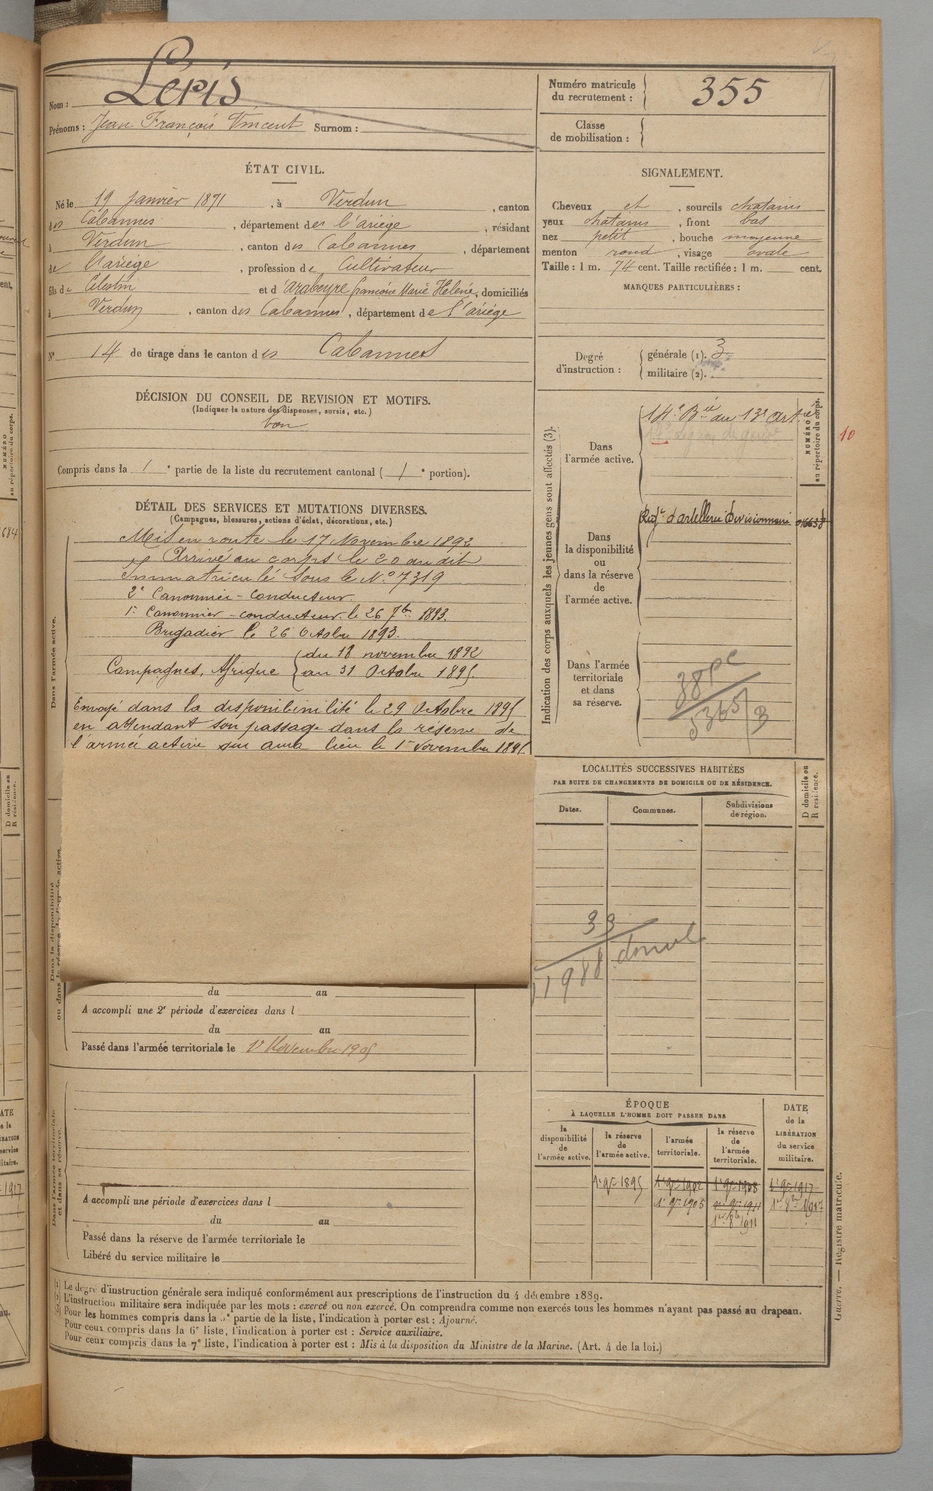 Nom : Lepis
Prénoms : Jean François Vincent Surnom :
Numéro matricule du recrutement : 355
Classe de mobilisation :
ÉTAT CIVIL.
Né le 19 Janvier 1871, à Verdun, canton
des Cabannes, département de l'ariège, résidant
à Verdun, canton des Cabannes, département
de l'ariège, profession de Cultivateur
fils de Celestin et d'Arabeyre françoise Marie Helène, domiciliés
à Verdun, canton des Cabannes, département de l'ariége
N° 14 de tirage dans le canton des Cabannes
DÉCISION DU CONSEIL DE REVISION ET MOTIFS.
(Indiquer la nature des dispenses, sursis, etc.)
bon
Compris dans la 1e partie de la liste du recrutement cantonal (1e portion).
DÉTAIL DES SERVICES ET MUTATIONS DIVERSES.
(Campagnes, blessures, actions d'éclat, décorations, etc.)
Mis en route le 17 Novembre 1892
Arrivé au corps le 20 du dit
Immatriculé sous le N° 7319
2e Canonnier-conducteur.
1er Canonnier-conducteur le 26 7bre 1893.
Brigadier le 26 Octobre 1893.
Campagnes, Afrique { du 18 novembre 1892
au 31 Octobre 1895
Envoyé dans la disponibilité le 29 Octobre 1895
en attendant son passage dans la réserve de
l'armée active qui aura lieu le 1er Novembre 1895
du au
A accompli une 2e période d'exercices dans l
du au
Passé dans l'armée territoriale le 1er Novembre 1905
A accompli une période d'exercices dans l
du au
Passé dans la réserve de l'armée territoriale le
Libéré du service militaire le
Dans l'armée active.
Dans la disponibilité ou dans la réserve de l'armée active.
Dans l'armée territoriale et dans sa réserve.
SIGNALEMENT.
Cheveux et, sourcils chatains
yeux chatains, front bas
nez petit, bouche moyenne
menton rond, visage ovale
Taille : 1 m. 74 cent. Taille rectifiée : 1 m. cent.
MARQUES PARTICULIÈRES :
Degré d'instruction : { générale (1). 3
militaire (2).
Indication des corps auxquels les jeunes gens sont affectés (3).
NUMÉRO au répertoire du corps.
Dans l'armée active.
14e Bie au 13e Artie
10
Dans la disponibilité ou dans la réserve de l'armée active.
Regt d'artillerie divisionnaire
Dans l'armée territoriale et dans sa réserve.
LOCALITÉS SUCCESSIVES HABITÉES
PAR SUITE DE CHANGEMENTS DE DOMICILE OU DE RÉSIDENCE.
Dates. Communes. Subdivisions de région. D domicile ou R résidence.
33
ÉPOQUE
À LAQUELLE L'HOMME DOIT PASSER DANS
DATE de la LIBÉRATION du service militaire.
la disponibilité de l'armée active. la réserve de l'armée active. l'armée territoriale. la réserve de l'armée territoriale.
(1) Le degré d'instruction générale sera indiqué conformément aux prescriptions de l'instruction du 4 décembre 1889.
(2) L'instruction militaire sera indiquée par les mots : exercé ou non exercé. On comprendra comme non exercés tous les hommes n'ayant pas passé au drapeau.
(3) Pour les hommes compris dans la 5e partie de la liste, l'indication à porter est : Ajourné.
Pour ceux compris dans la 6e liste, l'indication à porter est : Service auxiliaire.
Pour ceux compris dans la 7e liste, l'indication à porter est : Mis à la disposition du Ministre de la Marine. (Art. 4 de la loi.)
Guerre. — Registre matricule.